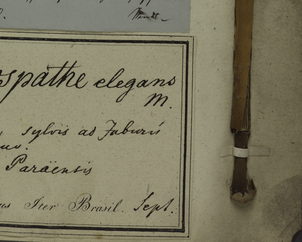 spathe elegans
M.
sylvis ad Taburú
Paräensis
us Iter Brasil. Sept.